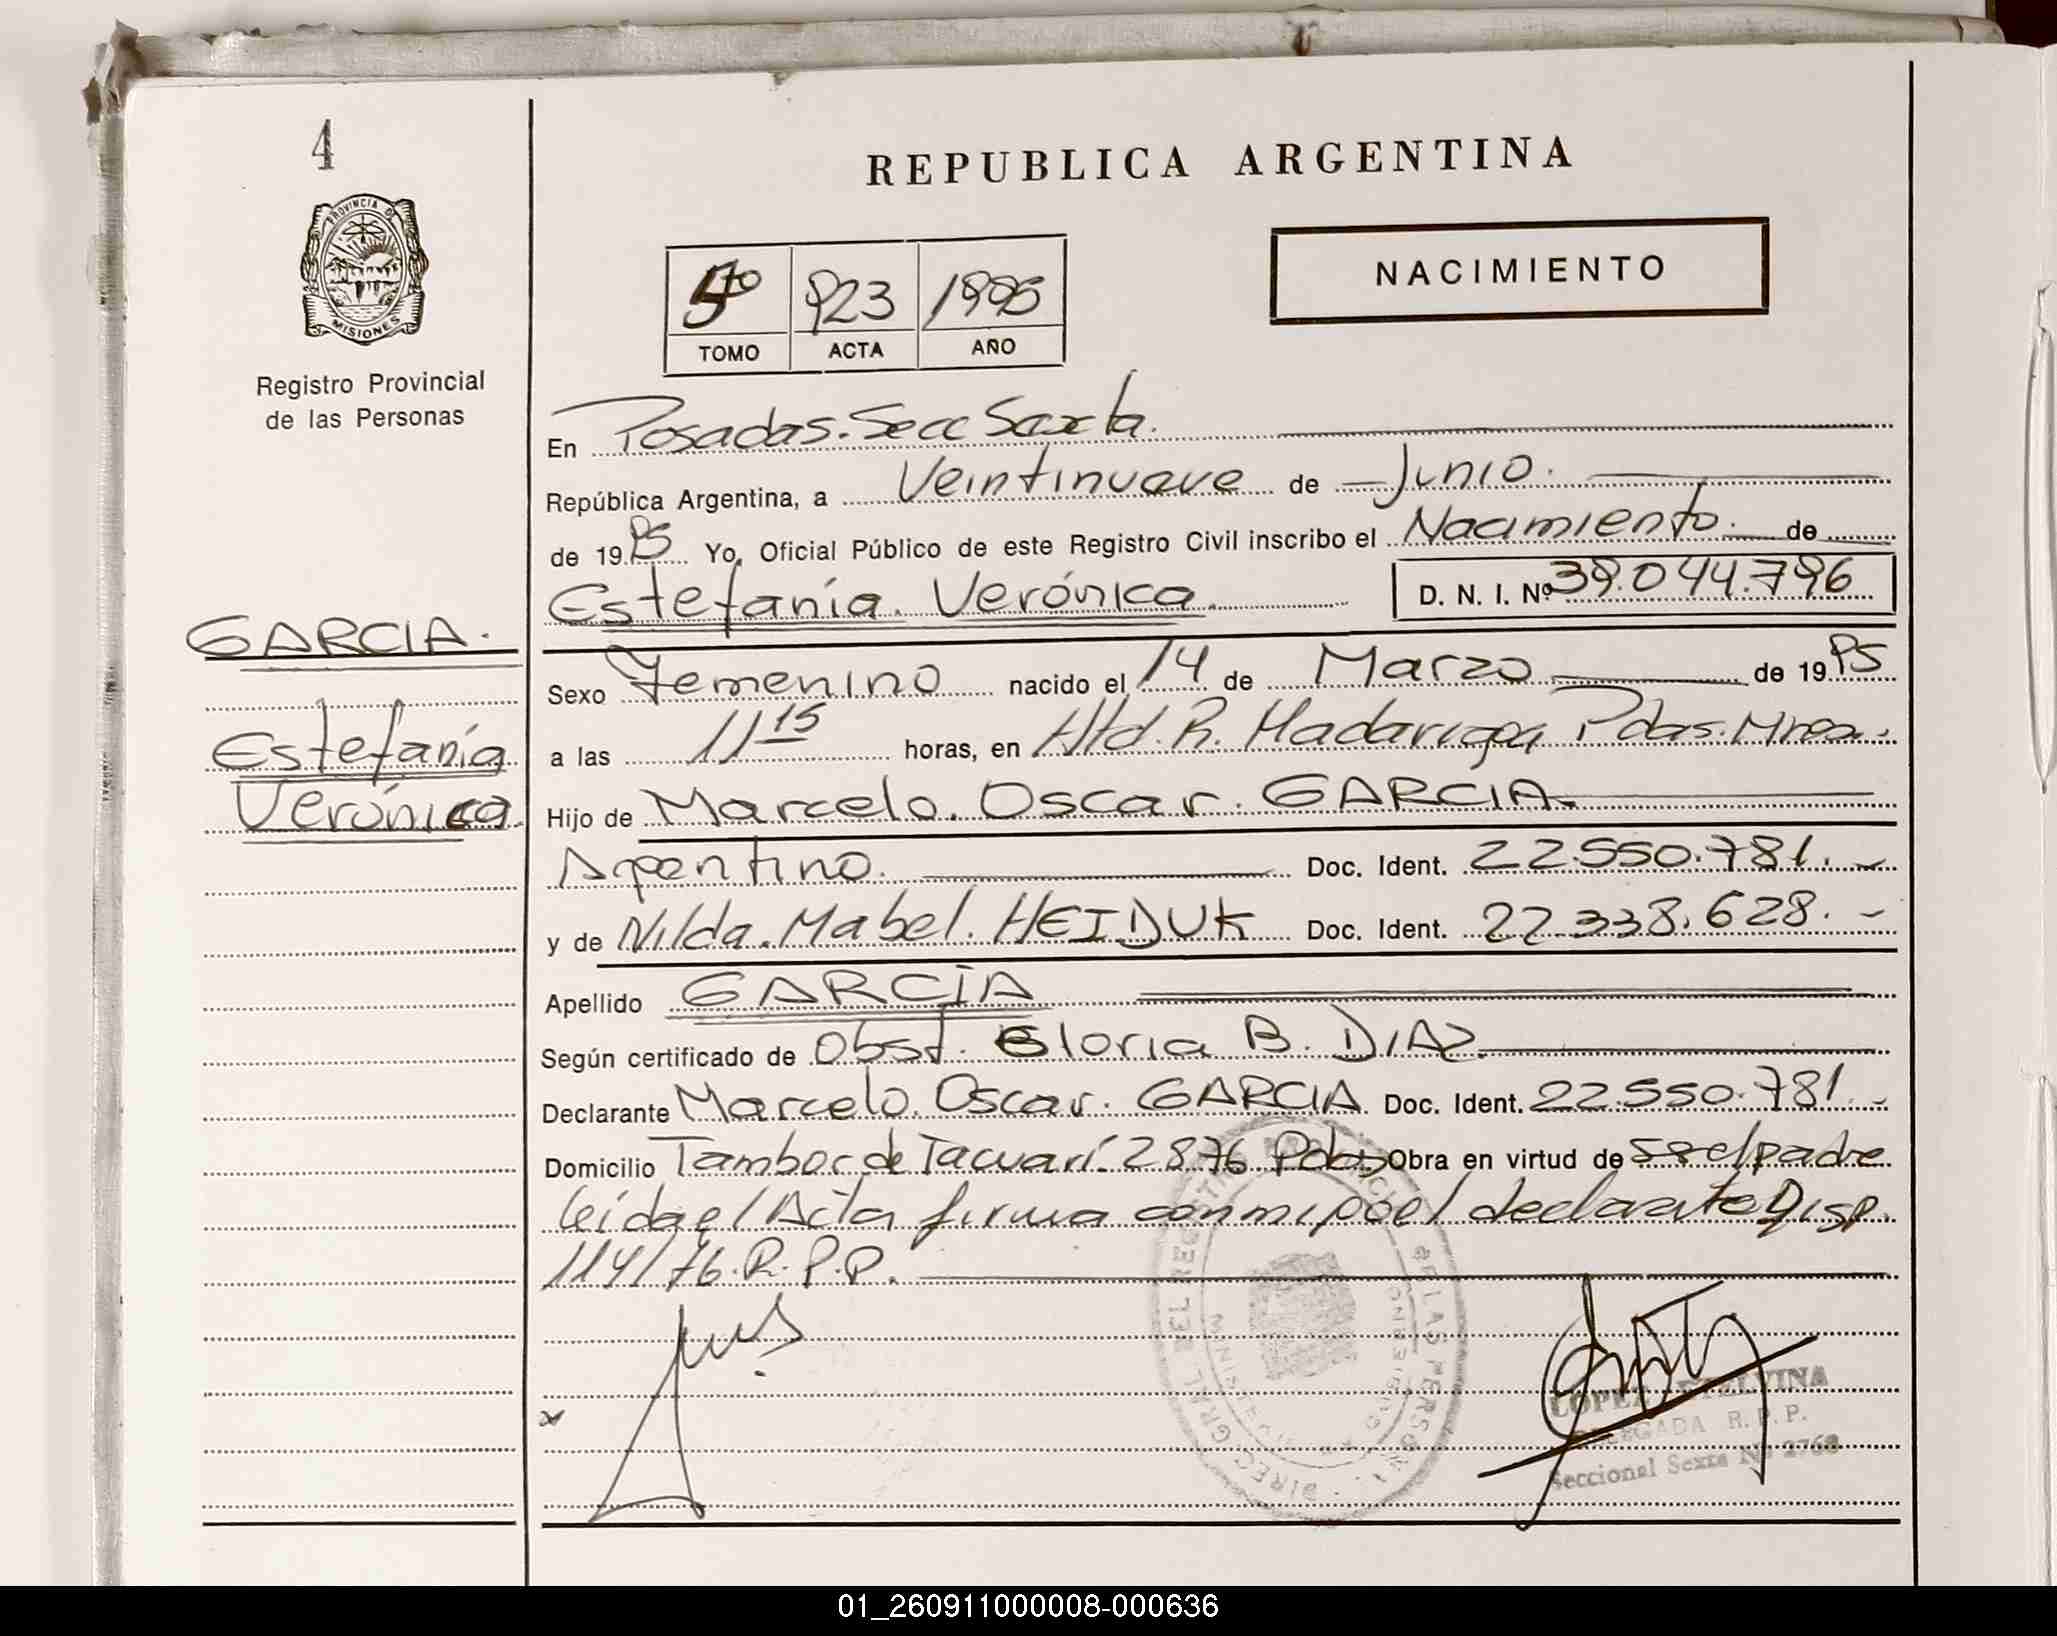 4
PROVINCIA DE
MISIONES
Registro Provincial
de las Personas
REPUBLICA ARGENTINA
NACIMIENTO
5to 923 1995
TOMO ACTA AÑO
En Posadas. Secc Sexta.
República Argentina, a Veintinueve de Junio.
de 19 95 Yo, Oficial Público de este Registro Civil inscribo el Nacimiento. de
Estefanía. Verónica. D. N. I. Nº 39.044.796
GARCIA.
Estefanía
Verónica.
Sexo Femenino nacido el 14 de Marzo de 19 95
a las 11 15 horas, en Htd. R. Madariaga Pdas. Mnes.
Hijo de Marcelo. Oscar. GARCIA.
Argentino. Doc. Ident. 22.550.781.
y de Nilda. Mabel. HEIDUK Doc. Ident. 22.338.628.
Apellido GARCÍA
Según certificado de Obst. Gloria B. DIAZ
Declarante Marcelo. Oscar. GARCIA Doc. Ident. 22.550.781.
Domicilio Tambor de Tacuarí. 2876 Pdas Obra en virtud de padre
leida el Acta firma conmigo el declarante Disp.
114/76. R. P. P.
LOPEZ ETELVINA
DELEGADA R. P. P.
Seccional Sexta Nº 2768
01_260911000008-000636